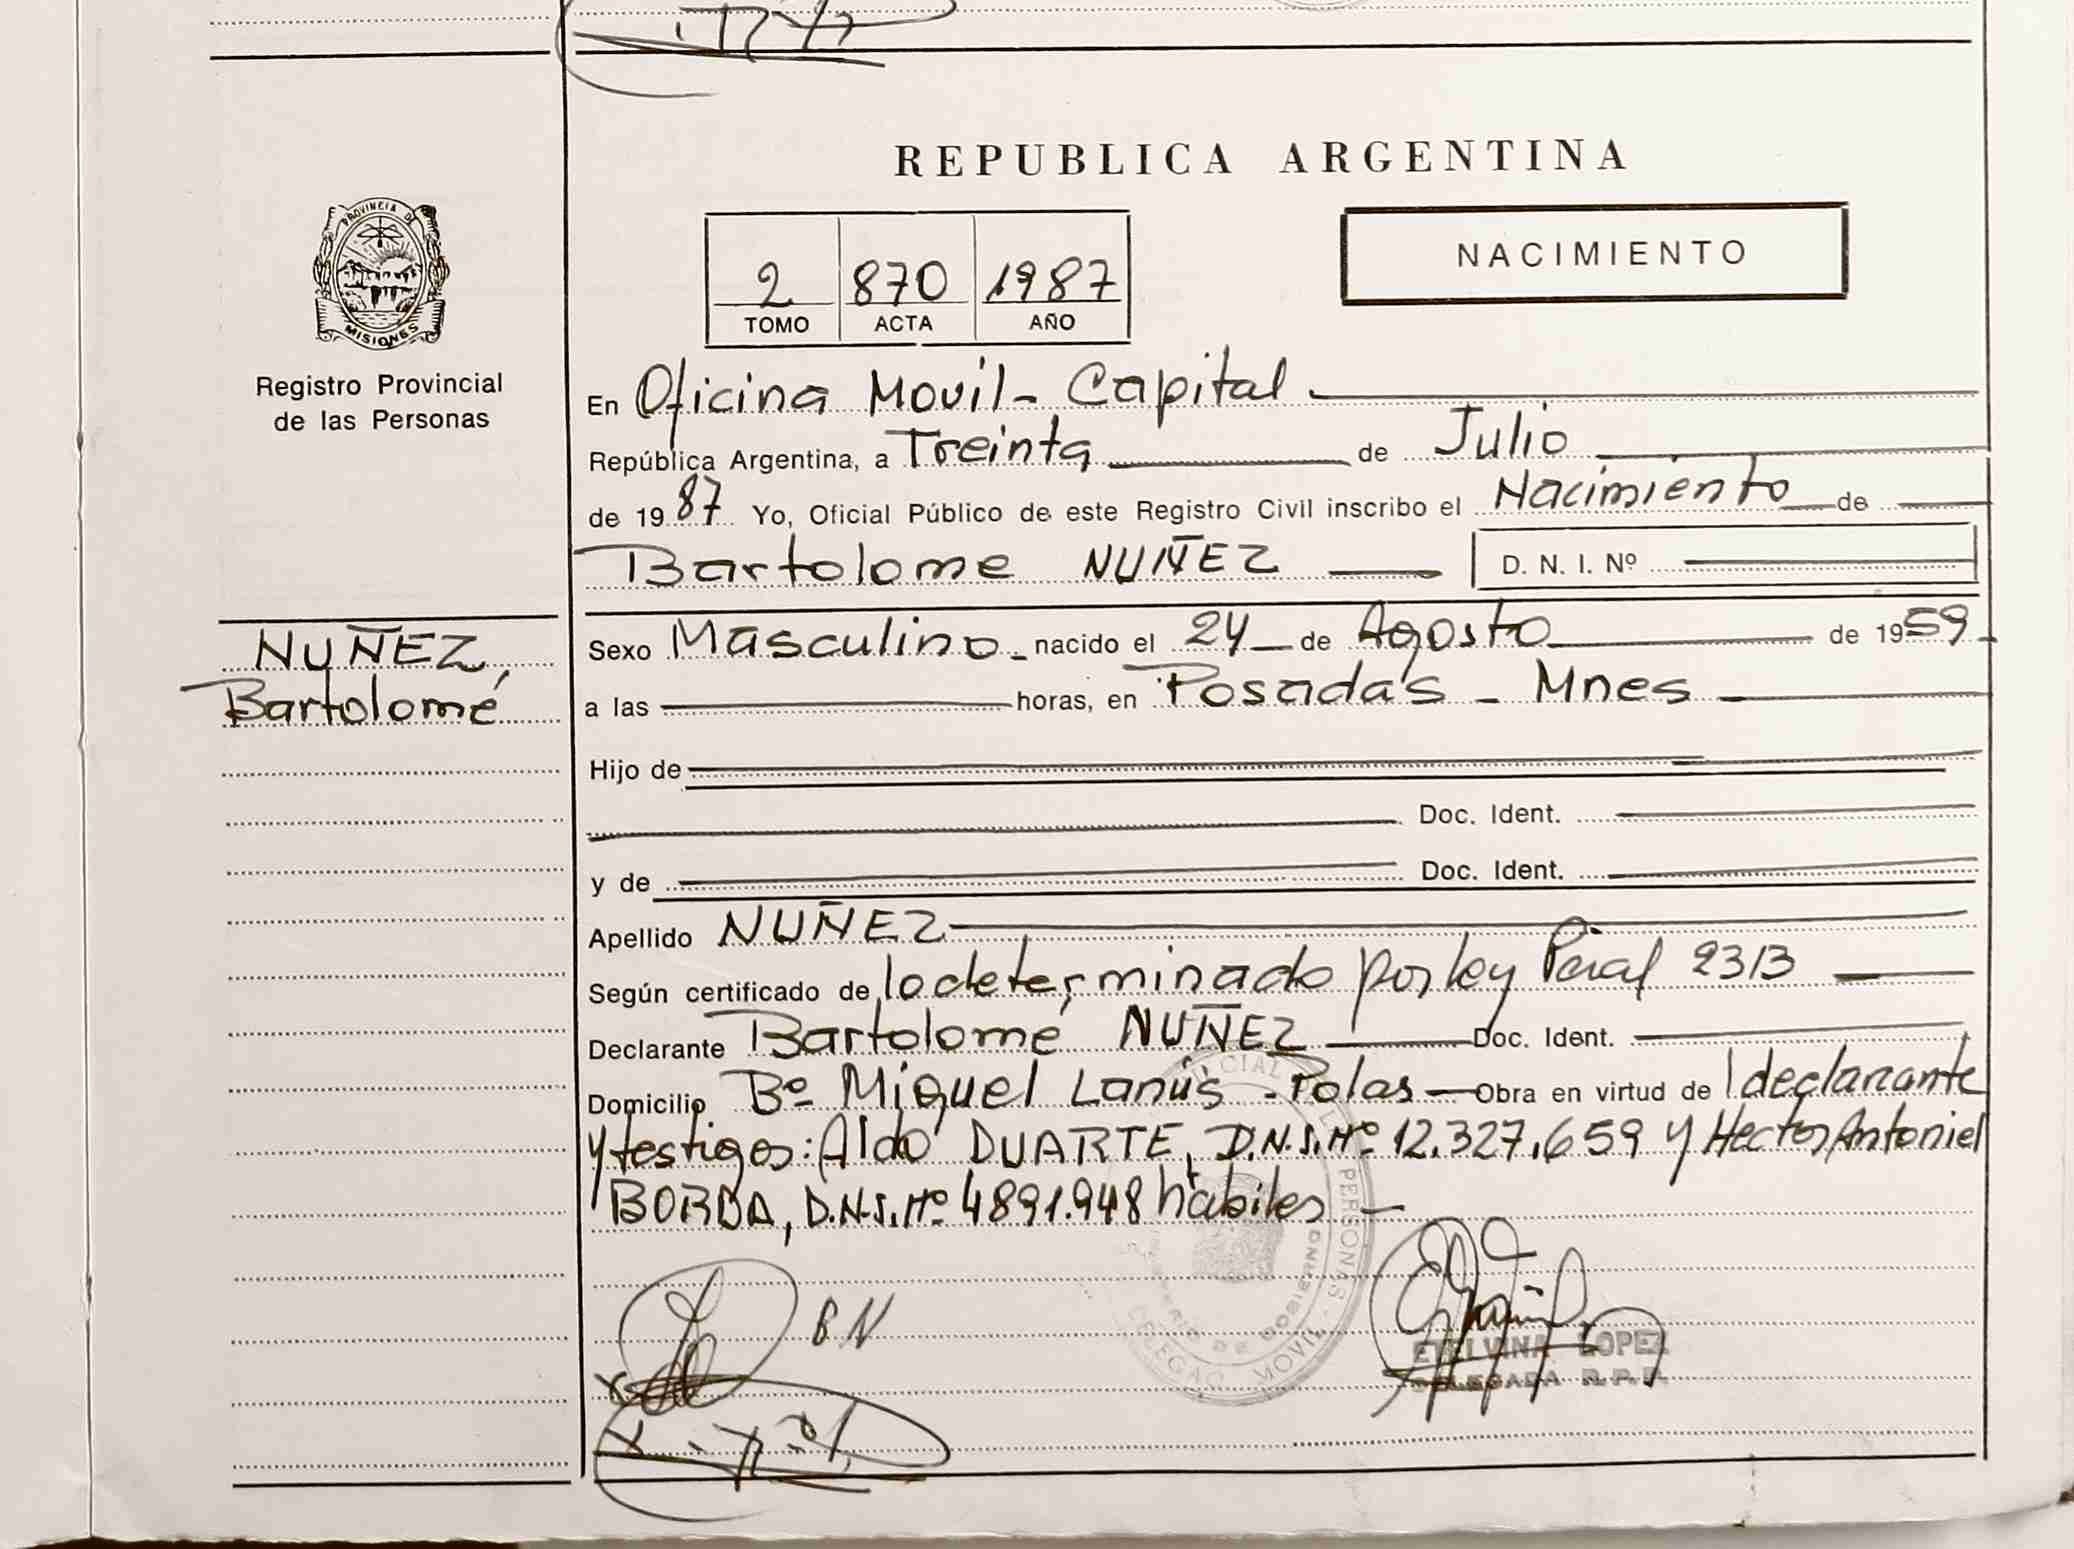 REPUBLICA ARGENTINA
PROVINCIA D
MISIONES
Registro Provincial
de las Personas
2 870 1987
TOMO ACTA AÑO
NACIMIENTO
En Oficina Movil - Capital
República Argentina, a Treinta de Julio
de 1987 Yo, Oficial Público de este Registro Civil inscribo el Nacimiento de
Bartolome NUÑEZ D. N. I. Nº
NUÑEZ,
Bartolomé
Sexo Masculino - nacido el 24 de Agosto de 1959
a las horas, en Posadas - Mnes
Hijo de
Doc. Ident.
y de Doc. Ident.
Apellido NUÑEZ
Según certificado de lo determinado por ley Pcial 2313
Declarante Bartolomé NUÑEZ Doc. Ident.
Domicilio Bº Miguel Lanús - Obra en virtud de l declarante
y testigos: Aldo DUARTE, D.N.I. Nº 12.327.659 y Hector Antoniel
BORDA, D.N.I. Nº 4891.948 hábiles
B N
PERSONAS
MOVIL
ETELVINA LOPEZ
DELEGADA R.P.P.